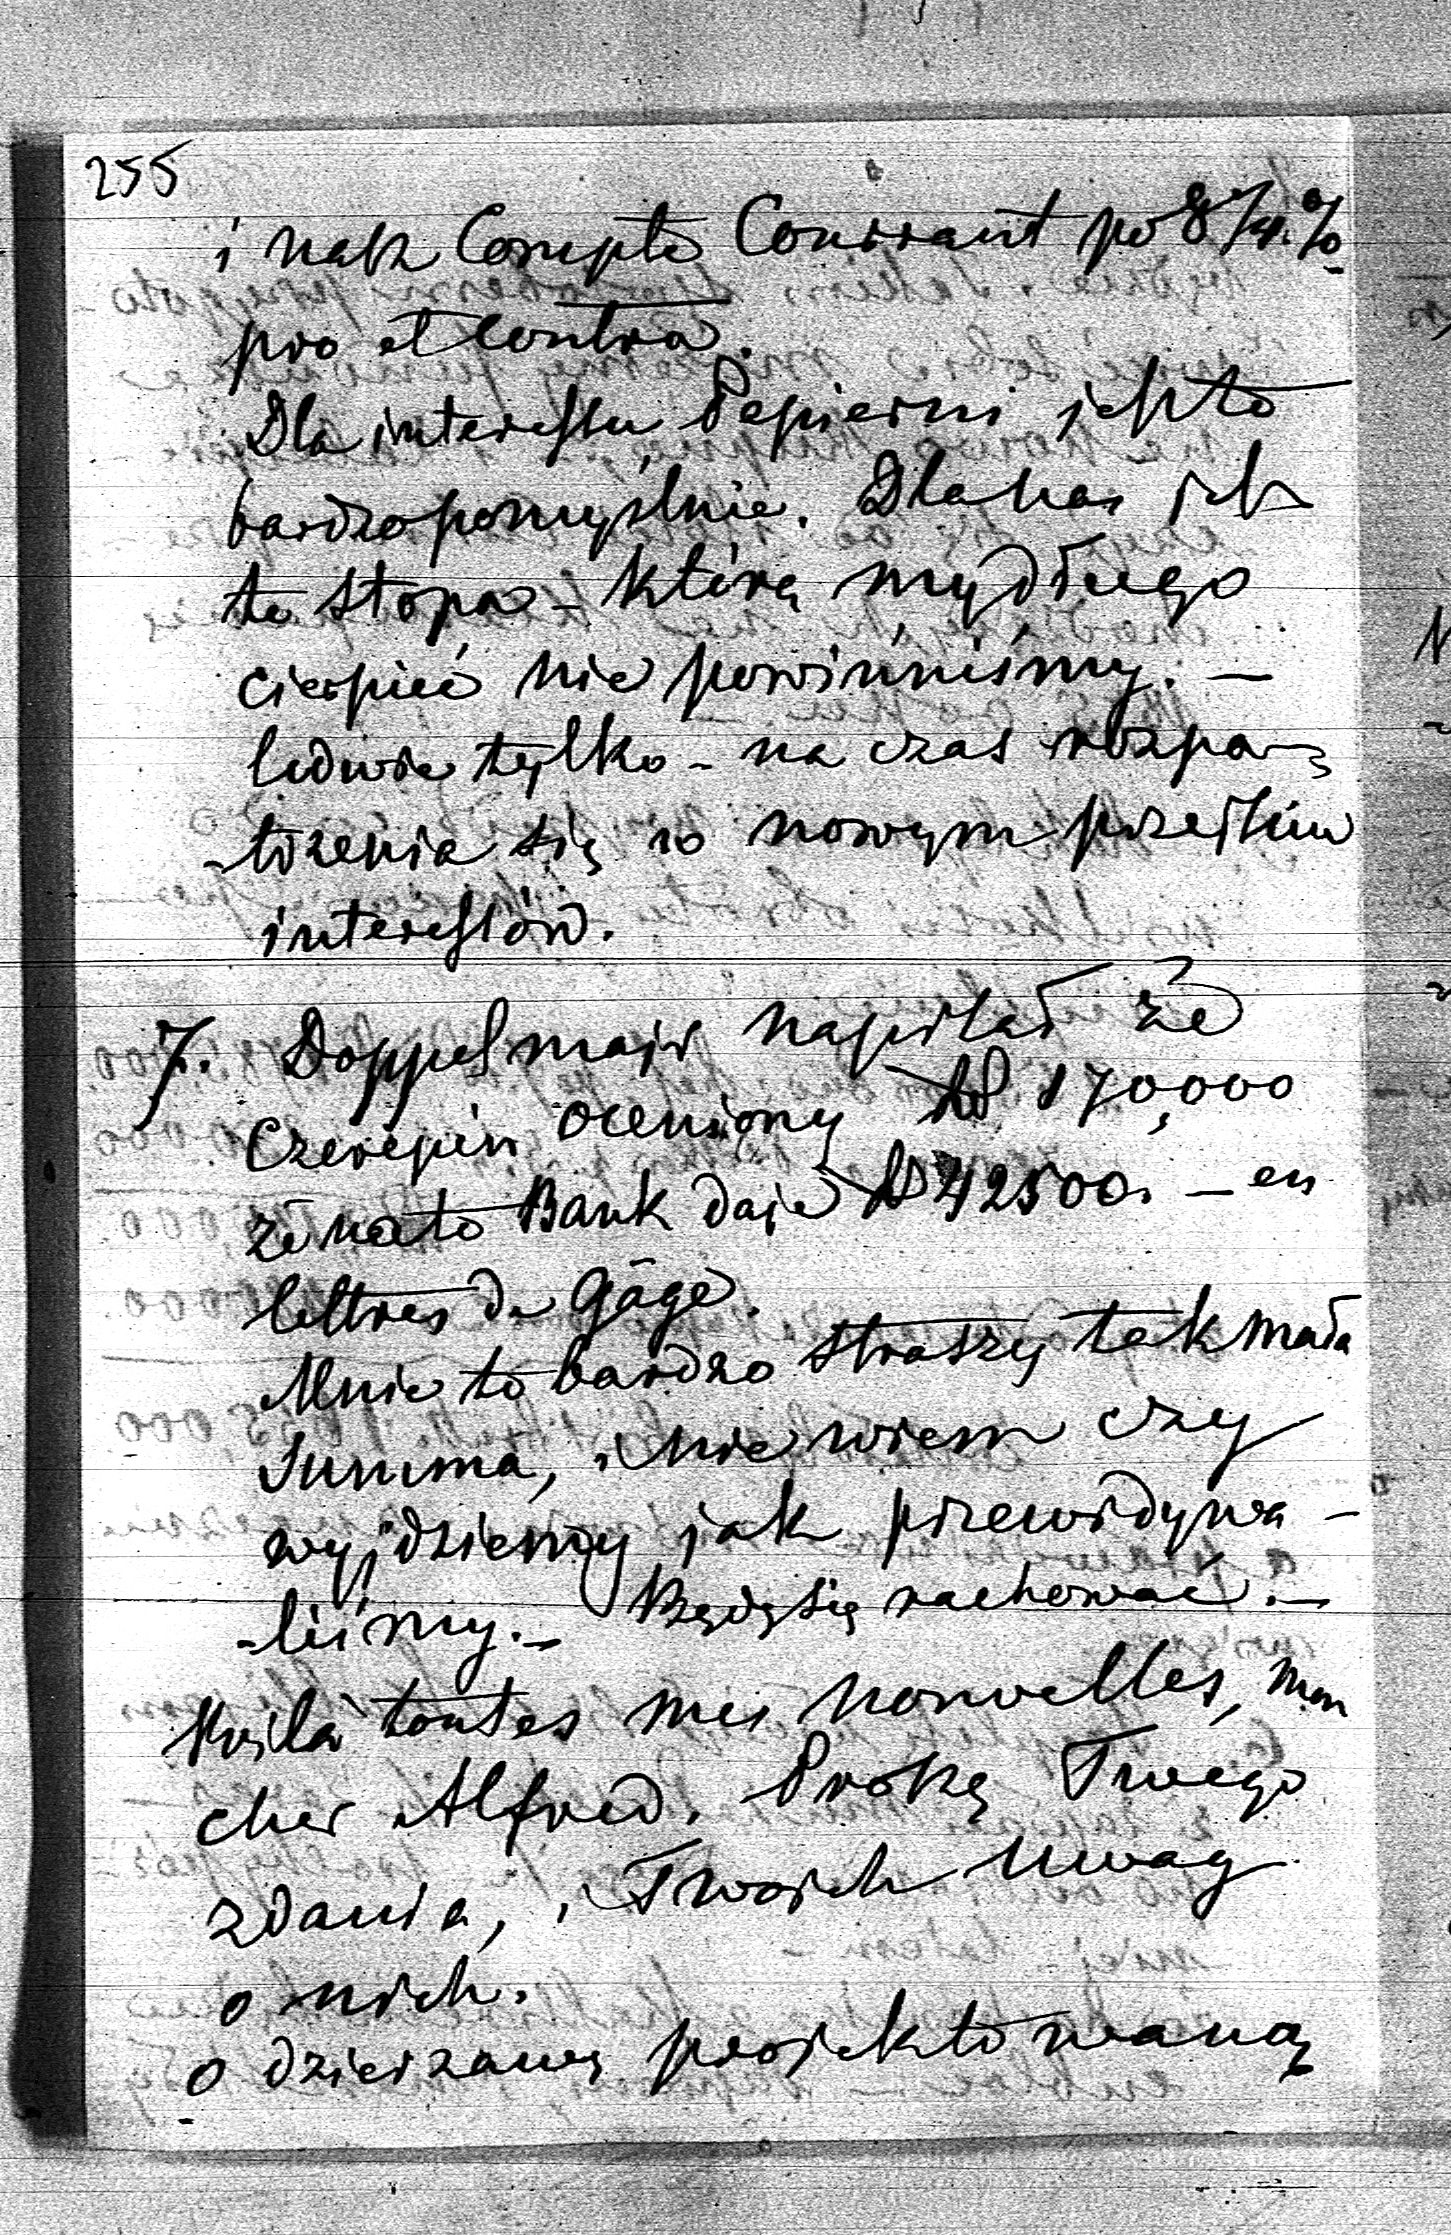 255
i nasz Compte Courrant po 8 %
pro et contra.
Dla interessu Papierni jest to
bardzo pomyślnie. Dla nas jest
to stopa – którą my długo
cierpieć nie powinniśmy. –
ledwie tylko – na czas rozpa-
-trzenia się w nowym
interessów.
7. Doppelmajer napisał że
Czerepin oceniony RS 170,000
że na to Bank daje RS 42500. – en
lettres de Gâge.
Mnie to bardzo straszy tak mała
Summa, i nie wiem czy
wyjdziemy jak przewidywa-
-liśmy. – Będę się rachować. –
Voilà toutes mes nouvelles, mon
cher Alfred. Proszę Twego
zdania, i Twoich uwag
o nich.
o dzierżawę projektowaną